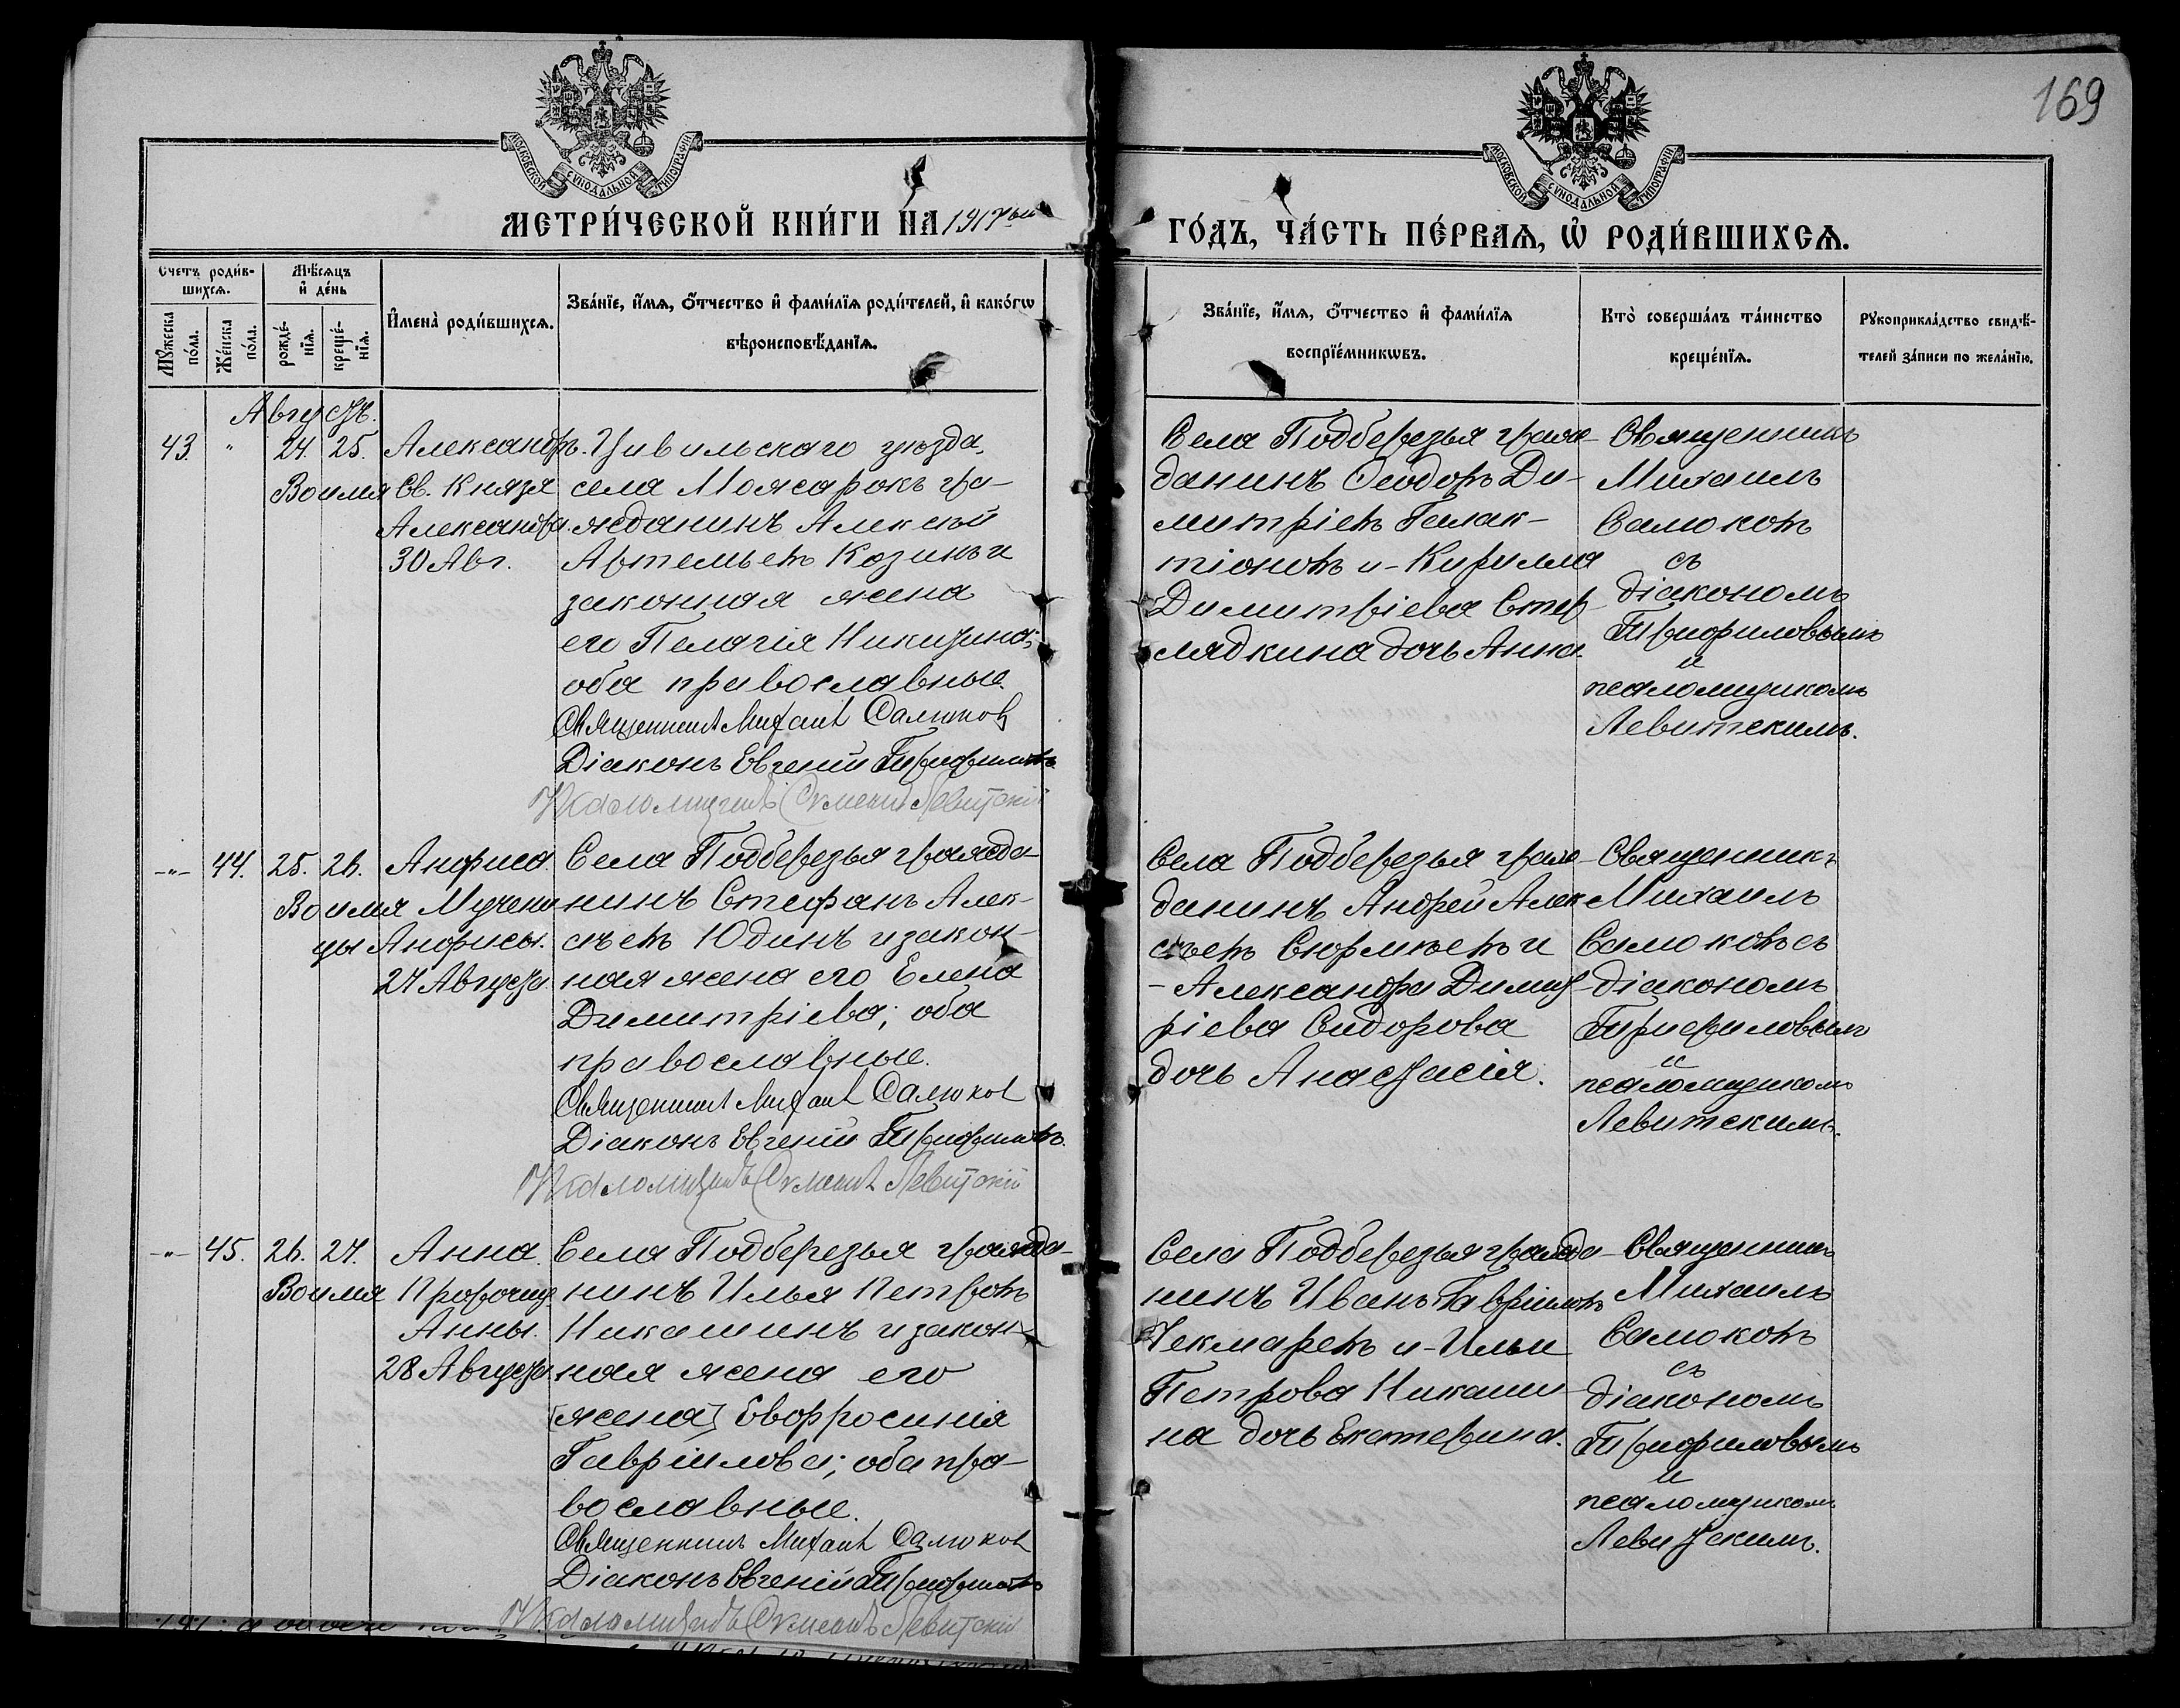 169
МОСКОВСКОЙ СѴНОДАЛЬНОЙ ТИПОГРАФІИ
МОСКОВСКОЙ СѴНОДАЛЬНОЙ ТИПОГРАФІИ
МЕТРИ́ЧЕСКОЙ КНИ́ГИ НА 1917ый
ГО́ДЪ, ЧА́СТЬ ПЕ́РВАЯ, Ѡ҆ РОДИ́ВШИХСЯ.
Счетъ роди́в-
шихся.
Мѣ́сяцъ
и҆ де́нь
Мꙋ́жеска
по́ла.
Же́нска
по́ла.
рожде́-
нїя.
креще́-
нїя.
И҆мена̀ роди́вшихся.
Зва́нїе, и҆́мя, ѻ҆́тчество и҆ фами́лїя роди́телей, и҆ како́гѡ
вѣроисповѣ́данїя.
Зва́нїе, и҆́мя, ѻ҆́тчество и҆ фами́лїя
воспрїе́мникѡвъ.
Кто̀ соверша́лъ та́инство
креще́нїя.
Рꙋкоприкла́дство свидѣ́-
телей за́писи по жела́нїю.
Августъ.
43. " 24. 25. Александръ.
Во имя Св. Князя
Александра.
30 Авг.
Цивильскаго уѣзда,
села Можарокъ гра-
жданинъ Алексѣй
Артемьевъ Козинъ и
законная жена
его Пелагія Никитина;
оба православные.
Священникъ Михаилъ Самоковъ
Діаконъ Евгеній Трифиловъ
Псаломщикъ Левитскій
Села Подберезья граж-
данинъ Ѳеодоръ Ди-
митріевъ Галак-
тіоновъ и Кирилла
Димитріева Стер-
лядкина дочь Анна.
Священникъ
Михаилъ
Самоковъ
съ
діакономъ
Трифиловымъ
и
псаломщикомъ
Левитскимъ.
-"- 44. 25. 26. Анфиса.
Во имя Мучени
цы Анфисы.
27 Августа.
Села Подберезья гражда-
нинъ Стефанъ Алек-
сѣевъ Юдинъ и закон-
ная жена его Елена
Димитріева; оба
православные.
Священникъ Михаилъ Самоковъ
Діаконъ Евгеній Трифиловъ.
Псаломщикъ Левитскій
Села Подберезья граж-
данинъ Андрей Алек
сѣевъ и
- Александра Димит-
ріева Сидорова
дочь Анастасія.
Священникъ
Михаилъ
Самоковъ съ
діакономъ
Трифиловымъ
и
псаломщикомъ
Левитскимъ.
-"- 45. 26. 27. Анна.
Во имя Пророчиц
Анны.
28 Августа.
Села Подберезья гражда-
нинъ Илья Петровъ
Никашинъ и закон-
ная жена его
[жена] Евфросинія
Гавріилова; оба пра-
вославные.
Священникъ Михаилъ Самоковъ
Діаконъ Евгеній Трифиловъ
Псаломщикъ Левитскій
Села Подберезья гражда-
нинъ Иванъ Гавріиловъ
Чекмаревъ и Ильи
Петрова Никаши-
на дочь Екатерина.
Священникъ
Михаилъ
Самоковъ
съ
діакономъ
Трифиловымъ
и
псаломщикомъ
Левитскимъ.